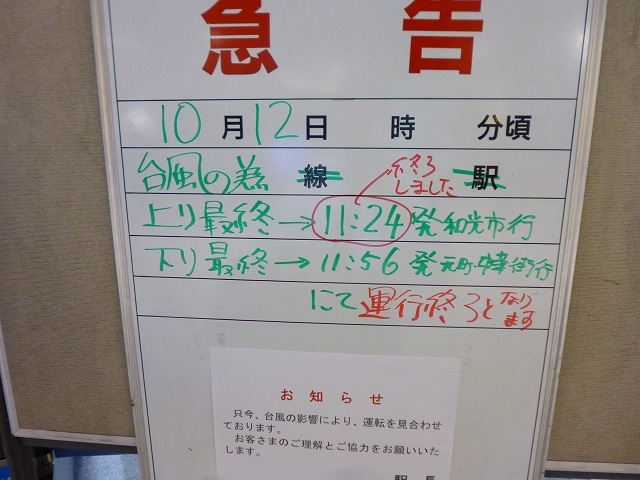 急告
10月12日 時 分頃
台風の為 線 駅
終了しました
上り最終→11:24発 和光市行
下り最終→11:56発 元町・中華街行
にて運行終了となります
お知らせ
只今、台風の影響により、運転を見合わせ
ております。
お客さまのご理解とご協力をお願いいた
します。
駅長